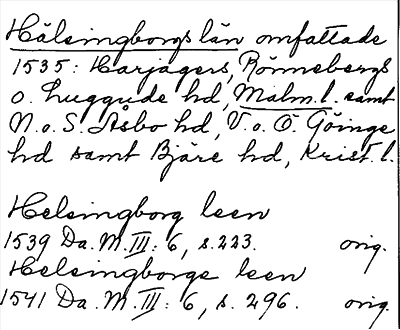 Hälsingborgs län omfattade
1535: Harjagers, Rönnebergs
o. Luggude hd, Malm. l. samt
N. o. S. Åsbo hd, V. o. Ö. Göinge
hd samt Bjäre hd, Krist. l.
Helsingborg leen
1539 Da. M. III: 6, s. 223. orig.
Helsingborgs leen
1541 Da. M. III: 6, s. 296. orig.